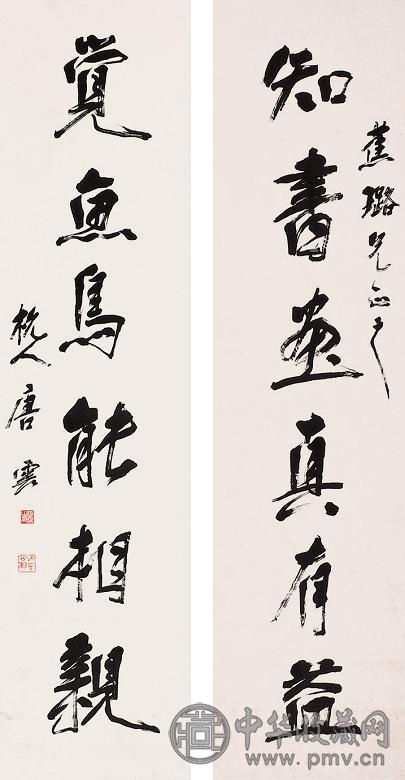 蕉璐兄正之
知書畫真有益
覺魚鳥能相親
杭人唐雲
中华收藏网
www.pmv.cn